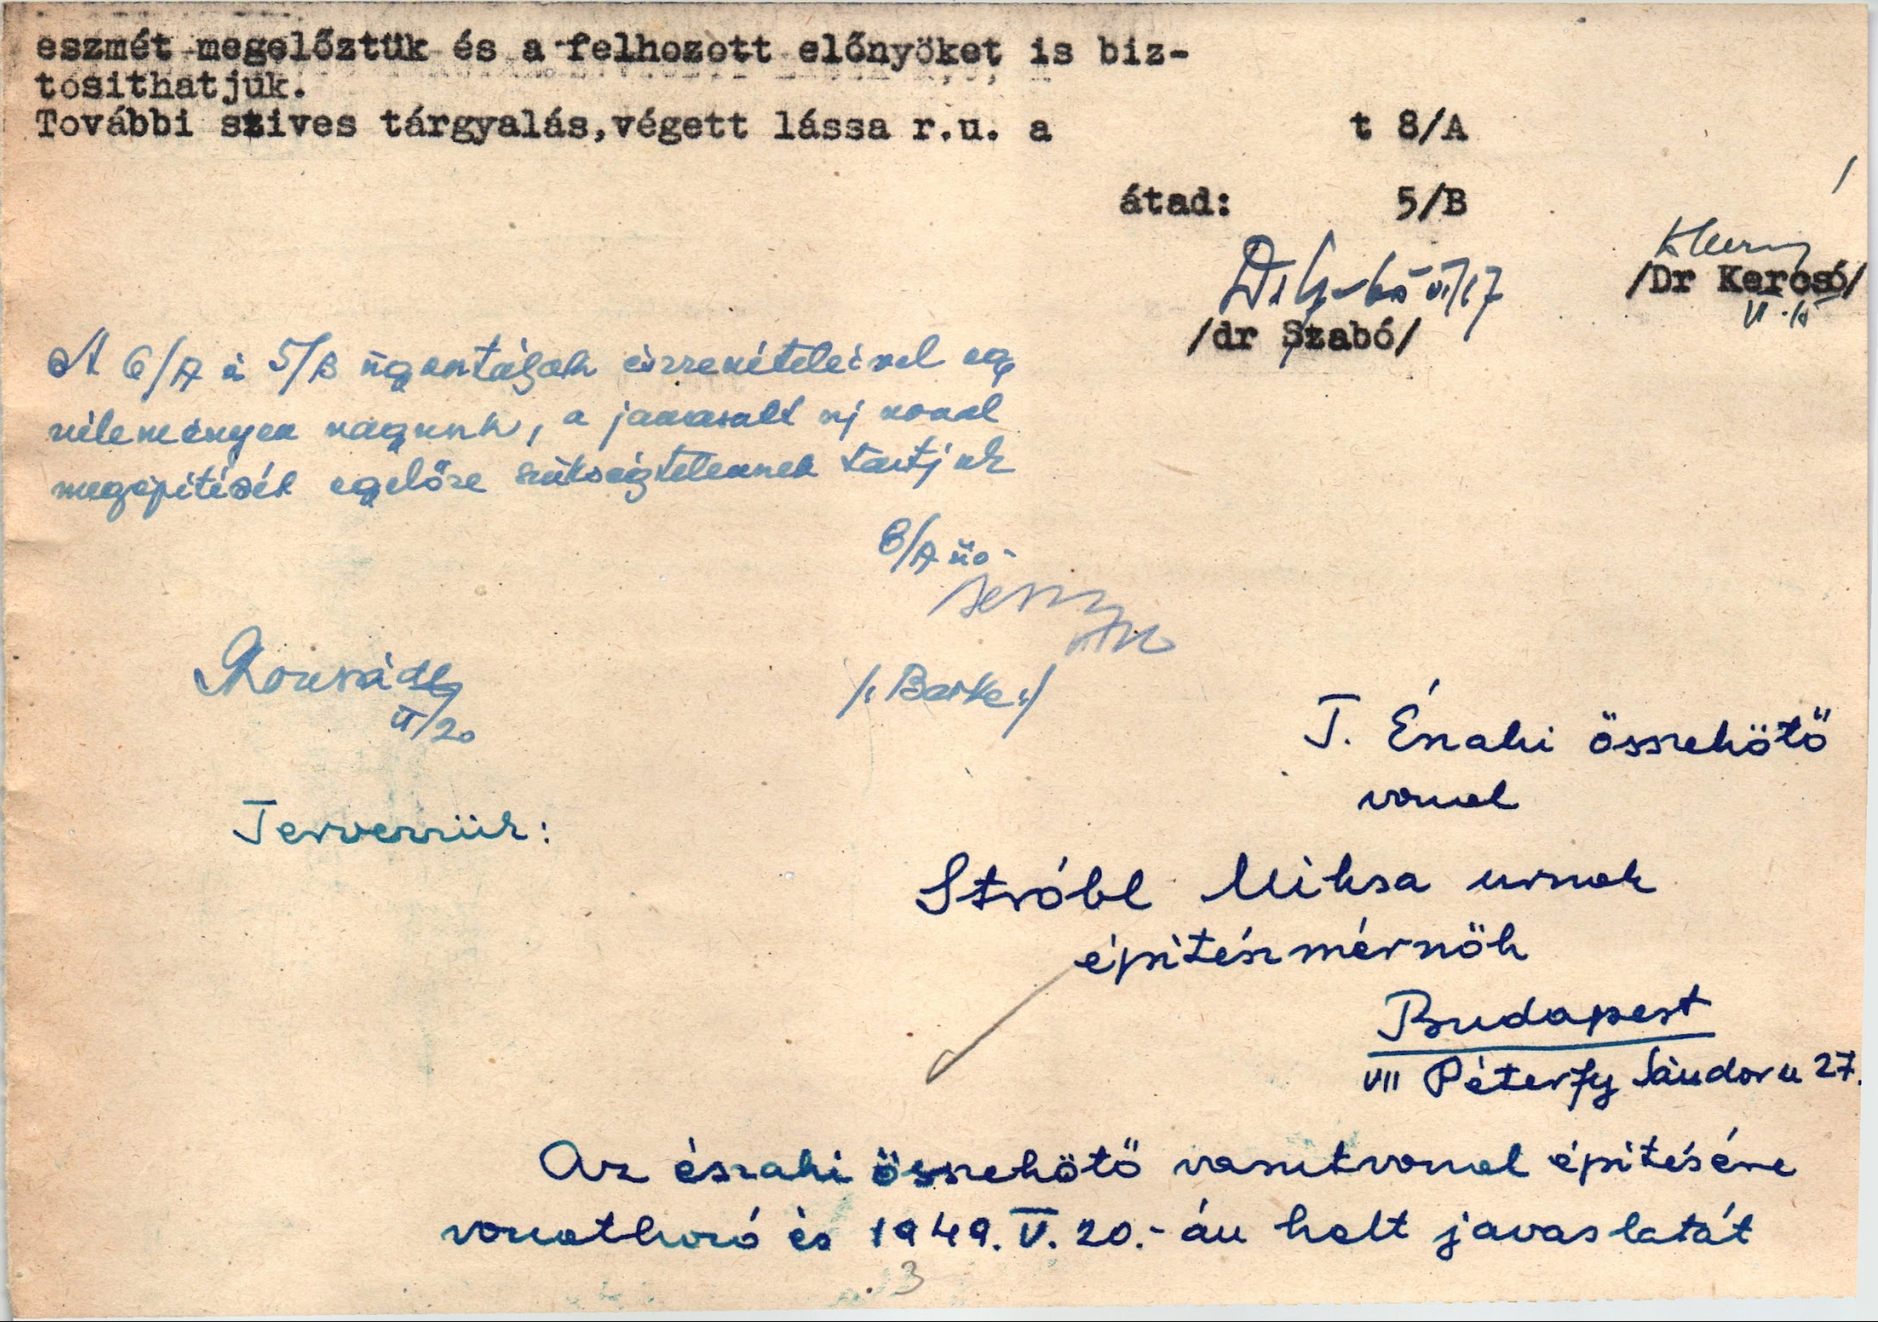 eszmét megelőztük és a felhozott előnyöket is biz-
tosithatjuk.
További szives tárgyalás,végett lássa r.u. a t 8/A
átad: 5/B
/dr Szabó/ VI/17
/Dr Kercsó/
A 6/A és 5/B ügyosztályok észrevételeivel egy
véleményen vagyunk, a javasolt uj vonal
megépitését egyelőre szükségtelennek tartjuk
8/A üo-
VI/20
/: Barke :/
T. Északi összekötő
vonal
Tervezzük:
Stróbl Miksa urnak
épitészmérnök
Budapest
VII Péterfy Sándor u 27.
Az északi összekötő vasutvonal épitésére
vonatkozó és 1949. V. 20.-án kelt javaslatát
3